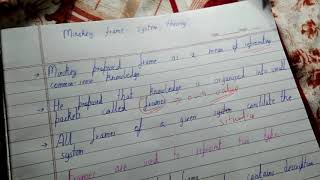 Minskey frame system theory
→ Minskey proposed frame as a mean of
common sense knowledge
→ He proposed that knowledge is organized into small
packets called frames
→ All frames of a given system constitute the
system
situation
frames are used to represent two
contains description